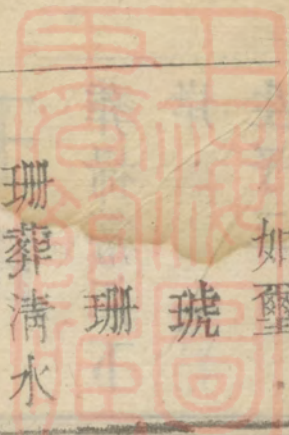 如璽
琥
珊
珊葬淸水